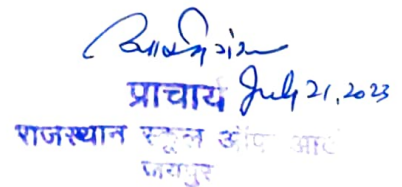 प्राचार्य July 21, 2023
राजस्थान स्कूल ऑफ आर्ट
जयपुर